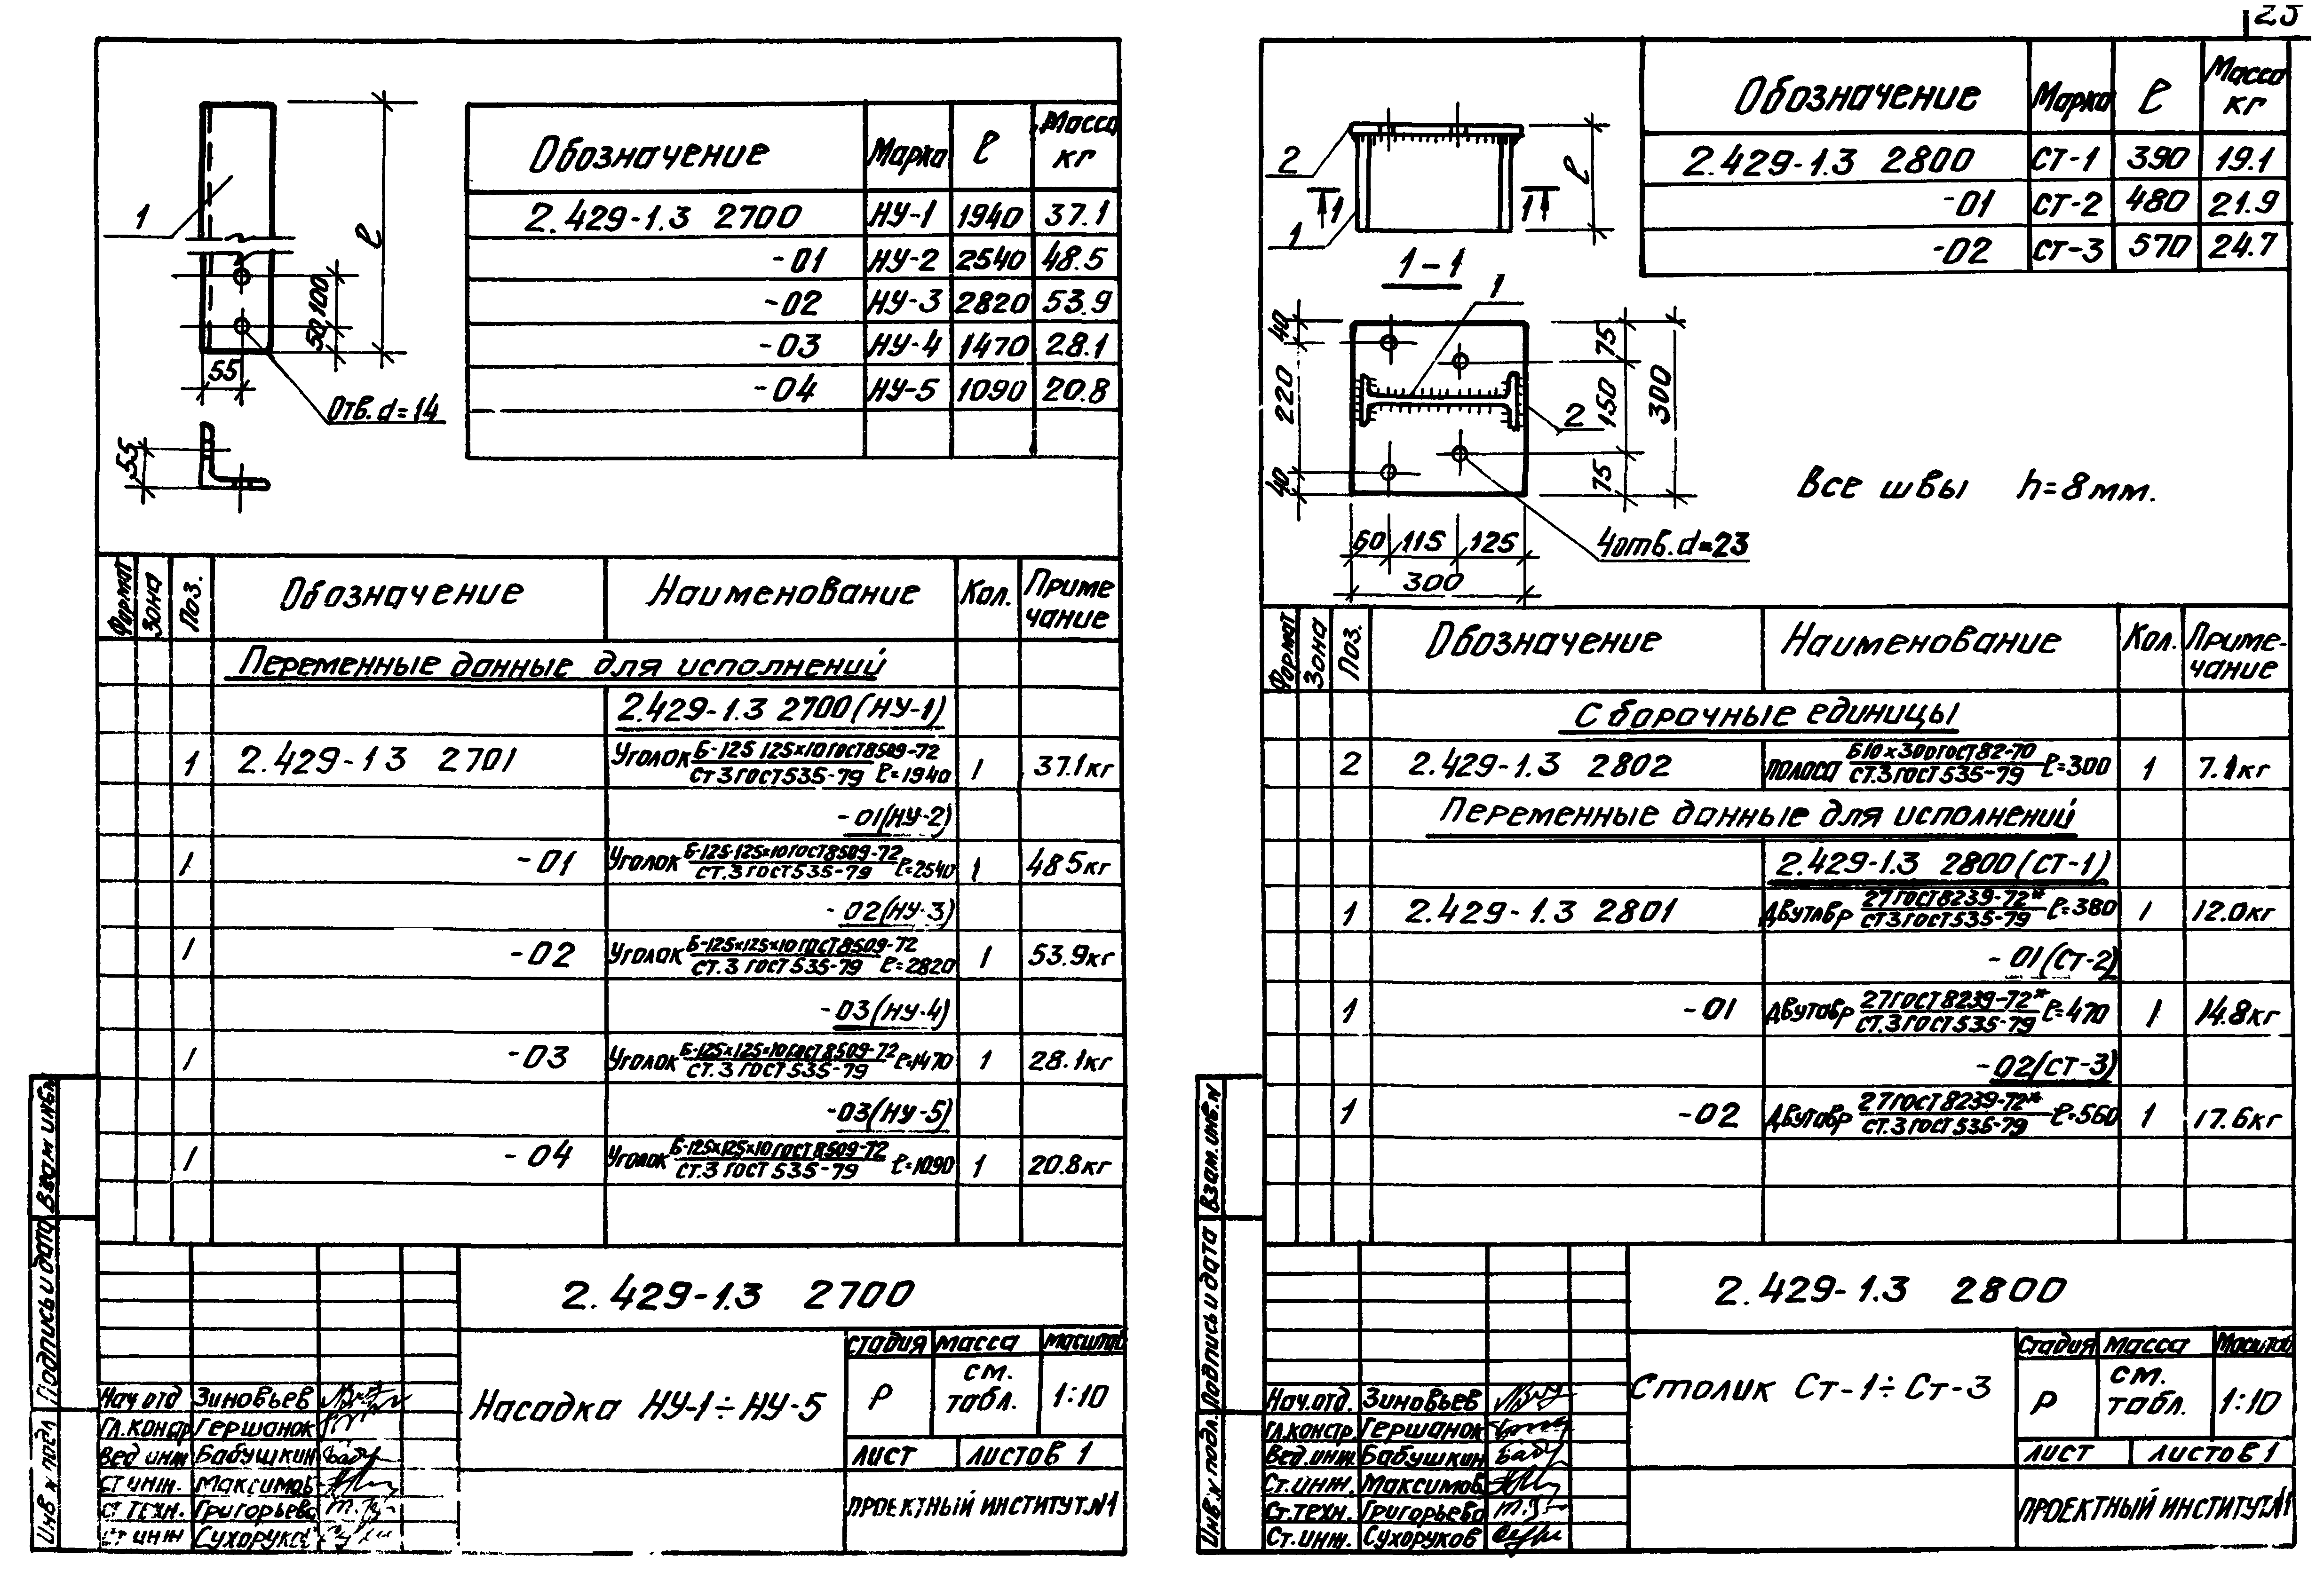 25
1
ℓ
50 100
55
Отв. d=14
55
Обозначение Марка ℓ Масса кг
2.429-1.3 2700 НУ-1 1940 37.1
-01 НУ-2 2540 48.5
-02 НУ-3 2820 53.9
-03 НУ-4 1470 28.1
-04 НУ-5 1090 20.8
Формат Зона Поз. Обозначение Наименование Кол. Приме
чание
Переменные данные для исполнений
2.429-1.3 2700 (НУ-1)
1 2.429-1.3 2701 Уголок Б-125 125x10 ГОСТ 8509-72
Ст 3 ГОСТ 535-79 ℓ=1940 1 37.1кг
-01(НУ-2)
1 -01 Уголок Б-125·125x10 ГОСТ 8509-72
Ст.3 ГОСТ 535-79 ℓ=2540 1 48.5кг
-02(НУ-3)
1 -02 Уголок Б-125x125x10 ГОСТ 8509-72
Ст.3 ГОСТ 535-79 ℓ=2820 1 53.9кг
-03(НУ-4)
1 -03 Уголок Б-125x125x10 ГОСТ 8509-72
Ст.3 ГОСТ 535-79 ℓ=1470 1 28.1кг
-03(НУ-5)
1 -04 Уголок Б-125x125x10 ГОСТ 8509-72
Ст.3 ГОСТ 535-79 ℓ=1090 1 20.8кг
Взам инв.N
Подпись и дата
Инв N подл
2.429-1.3 2700
Насадка НУ-1÷НУ-5
Стадия Масса Масштаб
Р см.
табл. 1:10
Лист Листов 1
Проектный институт N1
Нач отд Зиновьев
Гл.констр Гершанок
Вед инж Бабушкин
Ст инж. Максимов
Ст техн. Григорьева
Ст инж Сухоруков
2
1
1 1
ℓ
1-1
1
2
40 220 40
75 150 75
300
60 115 125
300
4отв. d=23
Все швы h=8мм.
Обозначение Марка ℓ Масса кг
2.429-1.3 2800 СТ-1 390 19.1
-01 СТ-2 480 21.9
-02 СТ-3 570 24.7
Формат Зона Поз. Обозначение Наименование Кол. Приме-
чание
Сборочные единицы
2 2.429-1.3 2802 полоса Б10x300 ГОСТ 82-70
Ст.3 ГОСТ 535-79 ℓ=300 1 7.1кг
Переменные данные для исполнений
2.429-1.3 2800 (СТ-1)
1 2.429-1.3 2801 Двутавр 27 ГОСТ 8239-72*
Ст 3 ГОСТ 535-79 ℓ=380 1 12.0кг
-01(СТ-2)
1 -01 Двутавр 27 ГОСТ 8239-72*
Ст.3 ГОСТ 535-79 ℓ=470 1 14.8кг
-02(СТ-3)
1 -02 Двутавр 27 ГОСТ 8239-72*
Ст.3 ГОСТ 535-79 ℓ=560 1 17.6кг
Взам.инв.N
Подпись и дата
Инв.N подл.
2.429-1.3 2800
Столик Ст-1÷Ст-3
Стадия Масса Масштаб
Р см.
табл. 1:10
Лист Листов 1
Проектный институт N1
Нач.отд. Зиновьев
Гл.констр. Гершанок
Вед.инж. Бабушкин
Ст.инж. Максимов
Ст.техн. Григорьева
Ст.инж. Сухоруков